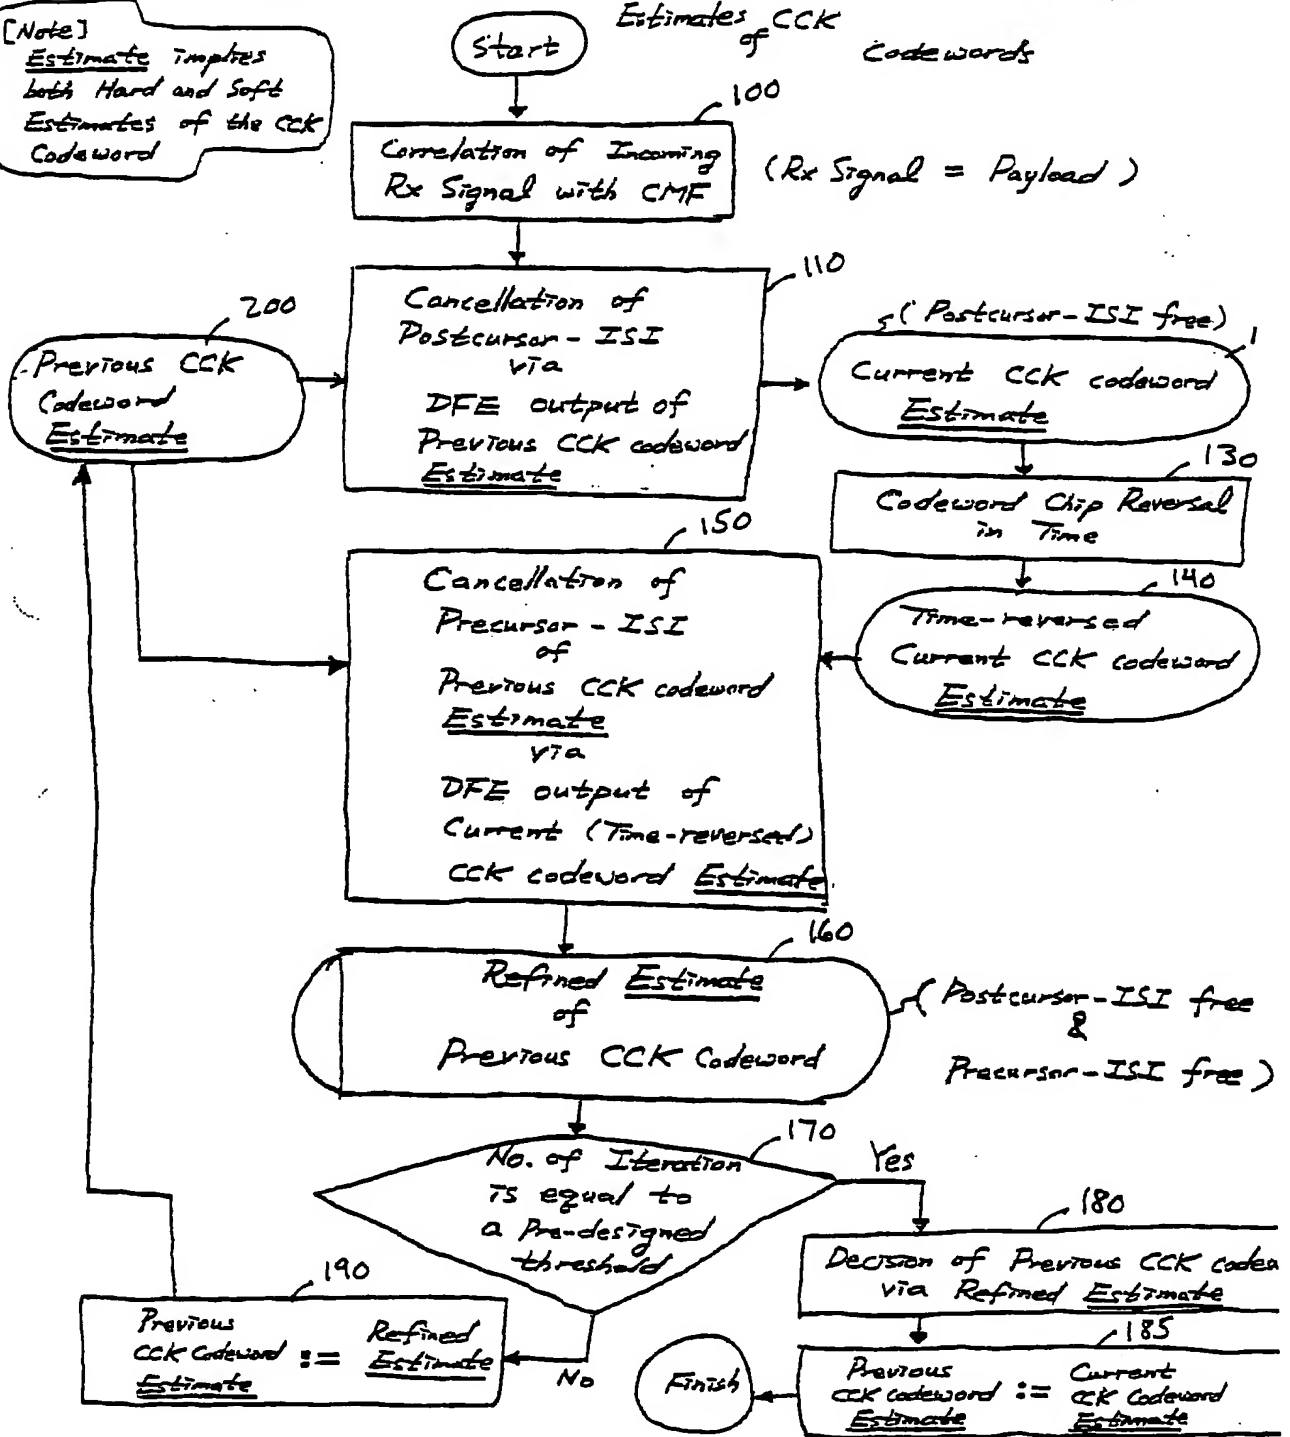 [Note]
Estimate implies
both Hard and Soft
Estimates of the CCK
Codeword
Estimates of CCK
Codewords
Start
100
Correlation of Incoming
Rx Signal with CMF
(Rx Signal = Payload)
110
Cancellation of
Postcursor-ISI
via
DFE output of
Previous CCK codeword
Estimate
200
Previous CCK
Codeword
Estimate
(Postcursor-ISI free)
1
Current CCK codeword
Estimate
130
Codeword Chip Reversal
in Time
140
Time-reversed
Current CCK codeword
Estimate
150
Cancellation of
Precursor-ISI
of
Previous CCK codeword
Estimate
via
DFE output of
Current (Time-reversed)
CCK codeword Estimate
160
Refined Estimate
of
Previous CCK Codeword
(Postcursor-ISI free
&
Precursor-ISI free)
170
No. of Iteration
is equal to
a Pre-designed
threshold
Yes
No
180
Decision of Previous CCK codew
via Refined Estimate
185
Previous
CCK codeword := Current
Estimate
CCK Codeword
Estimate
Finish
190
Previous
CCK Codeword := Refined
Estimate
Estimate